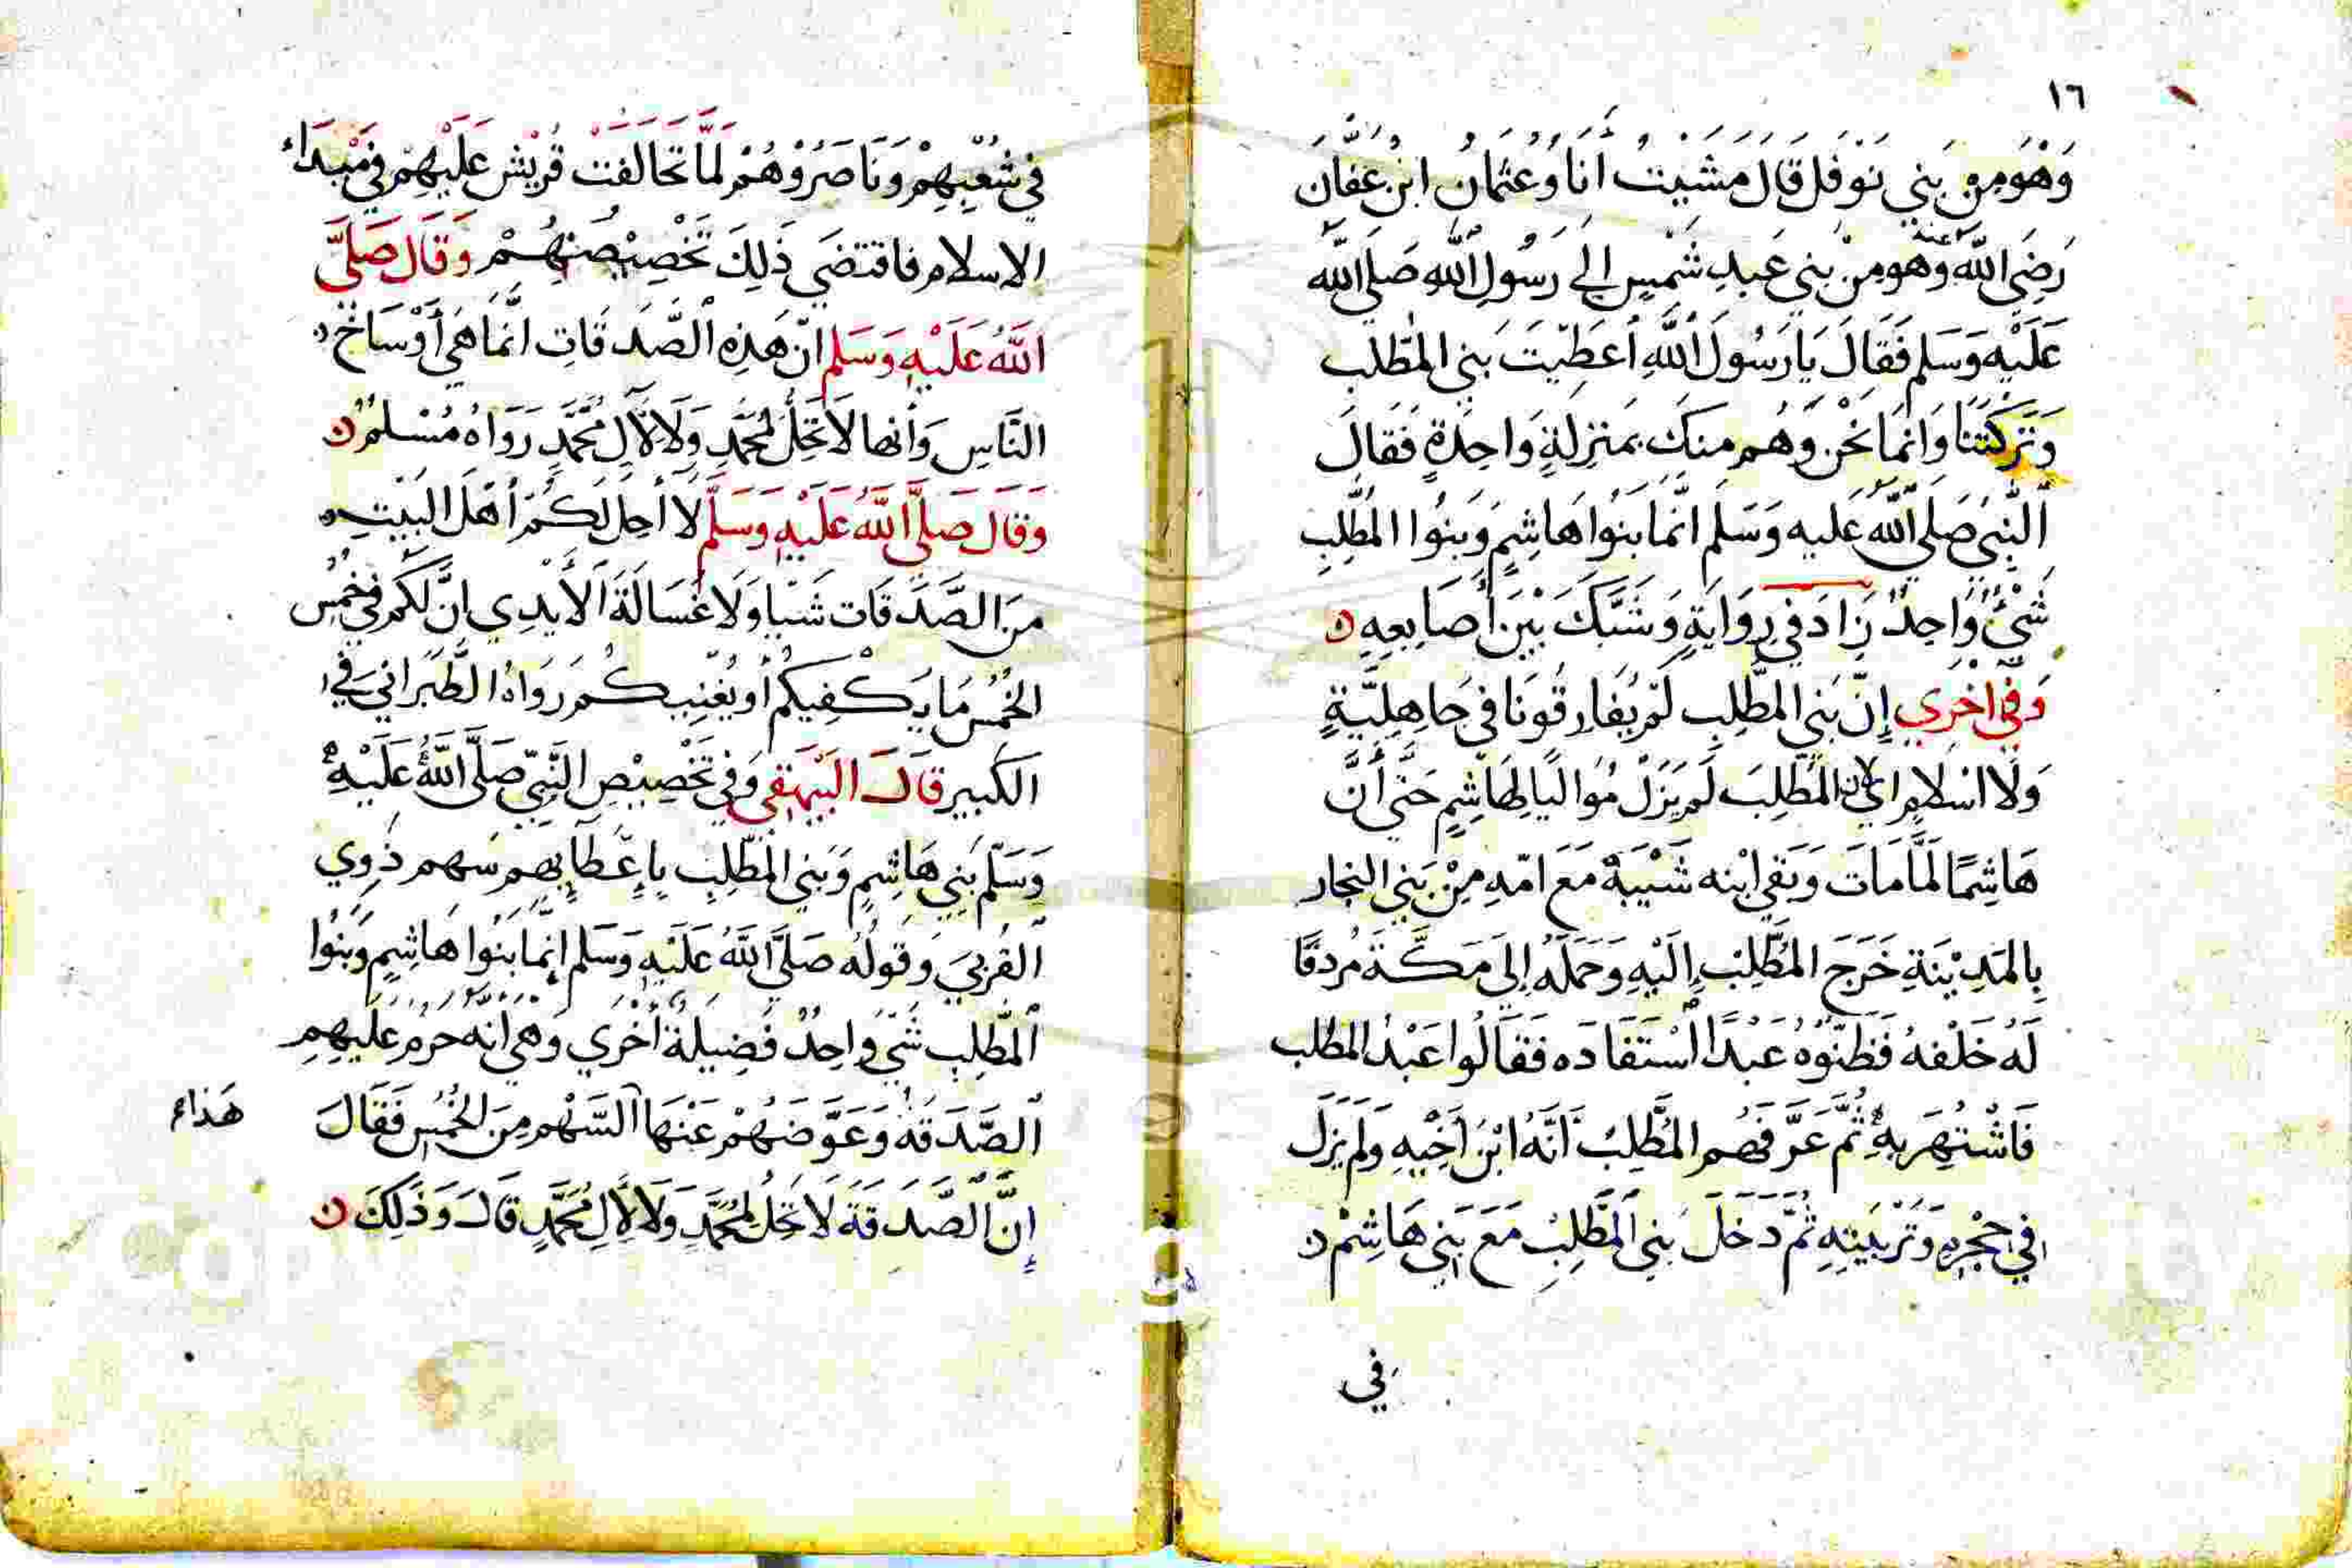 ١٦
وَهْوَ مِنْ بَنِي نَوْفَل قَالَ مَشَيْتُ أَنَا وَعُثمَانُ ابْنُ عَفَّانَ
رَضِيَ اللّٰه عنه وَهو مِنْ بَنِي عَبدِ شَمْسٍ إلى رَسُولِ اللهِ صَلى الله
عَلَيْهِ وَسَلم فَقَالَ يَا رَسُولَ اللَّهِ أَعطَيْتَ بَنِي المُطّلب
وَتَرَكْتَنَا وَانمَا نَحْن وَهُم مِنكَ بمَنزِلةٍ وَاحِدَةٍ فَقَالَ
النَّبِي صَلى اللّهُ عَليه وَسَلم انَّمَا بَنُوا هَاشِمٍ وَبَنُوا المُطَّلِبِ
شَيْئٌ وَاحِدٌ زَادَ فِي رِوَايَةٍ وَشَبَّكَ بَيْنَ أَصَابِعِهِ ن
وَفِي اخْرِي إِنَّ بَنِي المطَّلِبِ لَمْ يُفَارِقُونَا فِي جَاهِلِيَّةٍ
وَلَا اسْلَامٍ اي لان المُطَّلِبَ لَمْ يَزَلْ مُوَالِيًا لِهَاشِمٍ حَتَّى أَنَّ
هَاشِمًا لَمَّا مَاتَ وَبَقي ابْنه شَيْبَةُ مَعَ امّهِ مِنْ بَنِي النجار
بِالمَدِيْنَةِ خَرَجَ المُطَّلِبُ إِلَيْهِ وَحَمَلَهُ إِلَى مَكَّةَ مُردفًا
لَهُ خَلْفهُ فَظَنُّوهُ عَبْدًا اسْتَفَادَه فَقَالُوا عَبْدُ المطلب
فَاشْتُهِرَ بِهِ ثُمَّ عَرَّفَهُم المُطَّلِبُ أَنَّهُ ابْنُ أَخِيْهِ وَلَم يَزَل
في حِجْرِهِ وَتَرْبِيَتِهِ ثُمَّ دَخَلَ بَنِي المُطَّلِبُ مَعَ بَنِي هَاشِمْ
في
في شُعْبِهِمْ وَنَاصَرُوْهُمْ لَمَّا تَحَالَفَتْ قُرَيْش عَلَيْهِمْ فِي مَبْدَاءِ
الاسلام فاقتضَي ذَلِكَ تَخْصِيْصَهُمْ وَقَالَ صَلَّى
اللَّهُ عَلَيْهِ وَسَلم انّ هَذِهِ الصَّدَقَاتِ انَّمَا هَي أَوْسَاخُ
النَّاسِ وَأنها لَا تَحِلُّ لمُحَمَّدٍ وَلَا لِآلِ مُحَمَّدٍ رَوَاهُ مُسْلمٌ ن
وَقَالَ صَلَّى اللَّهُ عَلَيْهِ وَسَلَّم لَا أُحِلُّ لَكُم أَهْلَ البَيْتِ
مِنَ الصَّدَقَات شَيْا وَلَا غُسَالَةَ الأَيْدِي انَّ لَكُم فِي خُمُسِ
الخُمُسِ مَا يَكْفِيكُم أَو يُغْنِيكُم رَوَاهُ الطَّبَرانيُّ فِي
الكَبير قَالَ البَيْهَقِي وَفِي تَخْصِيْصِ النَّبِيِّ صَلَّى اللَّهُ عَلَيْهِ
وَسَلَّم بَنِي هَاشِمٍ وَبَنِي المُطَّلِبِ بِاعْطَايِهِم سَهم ذَوِي
القُربَي وَقولُه صَلَّى اللَّهُ عَلَيْهِ وَسَلم إنمَّا بَنُوا هَاشِمٍ وَبَنُوا
المُطَّلِبِ شَيْ وَاحِدٌ فَضِيلَةٌ أُخْرَي وَهي انَّهُ حَرُمَ عَلَيهِم
الصَّدَقَةُ وَعَوَّضَهُمْ عَنْهَا السَّهْم مِنَ الخُمُسِ فَقَالَ
إِنَّ الصَّدَقَةَ لَا تَحِلُّ لمُحَمَّدٍ وَلَا لِآلِ مُحَمَّدٍ قَالَ وَذَلِكَ ن